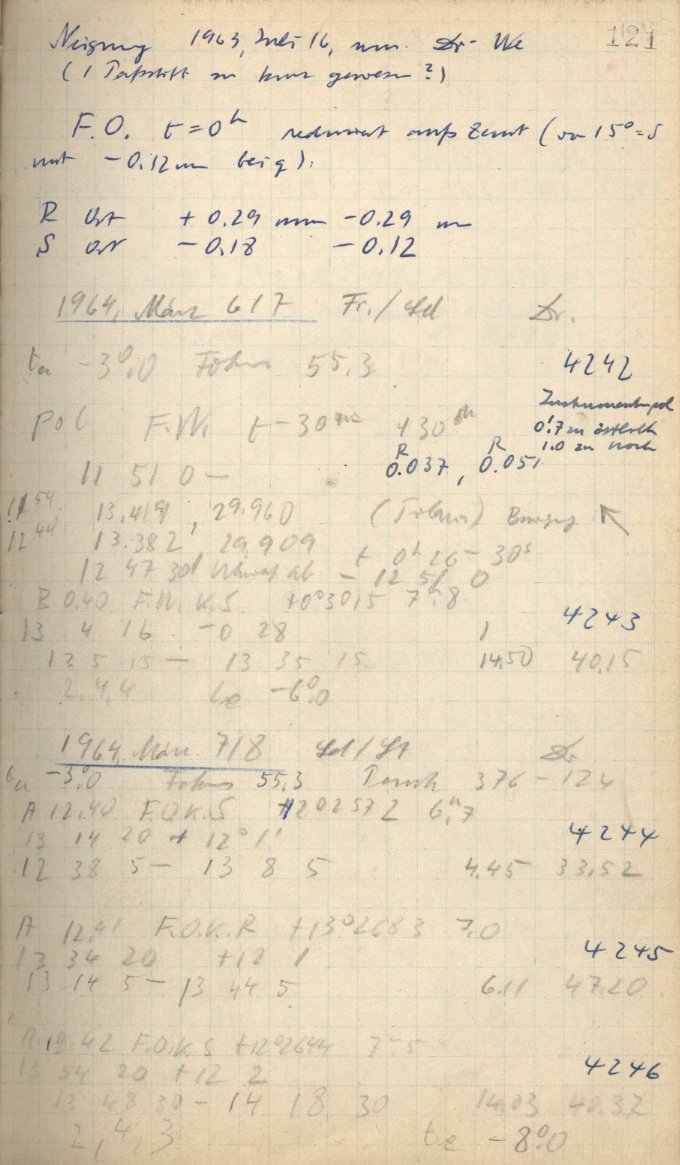 121
Neigung 1963, Juli 16, nm. Dr - We
(1 Paßstift zu kurz gewesen?)
F.O. t=0h reduziert aufs Zenit (
mit -0.12 mm bei 9).
R Ost +0.29 mm -0.29 m
S Ost -0.18 -0.12
1964, März 6/7 Fr./ Ld Dr.
ta -3°.0 Fokus 55,3 4242
Instrumentenpol
Pol F.W. t -30m +30m 0!7 zu östlich
R R 1.0 zu hoch
11 51 0 — 0.037, 0.051
11 54 13.419, 29.960 (Fokus) Bewegung
12 44 13.382 29.909
t 0h 26 - 30s
12 47 30 - 12 51 0
B 0.40 F.W. K.S +0°3015 7.8 4243
13 4 16 -0 28 1
13 5 15 — 13 35 15 14.50 40.15
2,4,4 te -6°.0
1964, März 7/8 Ld/St Dr
ta -3°.0 Fokus 55,3 376 - 124
A 12.40 F.O.K.S +12 02572 6m,7
13 14 20 + 12° 1' 4244
12 38 5 — 13 8 5 4.45 33.52
A 12.41 F.O.K.R +13°2683 7.0
13 34 20 +12 1 4245
13 14 5 — 13 44 5 6.11 47.20
A 12.42 F.O.K.S +12°2644 7.5
13 54 20 +12 2 4246
13 48 30 - 14 18 30 14.03 40.32
2,4,3 te -8°.0